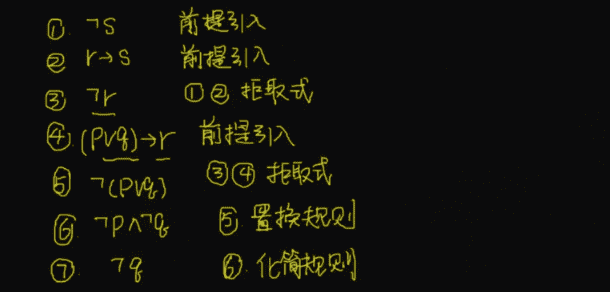 ① ¬S 前提引入
② r→S 前提引入
③ ¬r ①② 拒取式
④ (p∨q)→r 前提引入
⑤ ¬(p∨q) ③④ 拒取式
⑥ ¬p∧¬q ⑤ 置换规则
⑦ ¬q ⑥ 化简规则